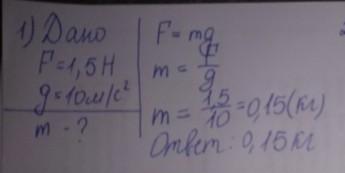 1) Дано
F = 1,5 Н
g = 10 м/с²
m - ?
F = mg
m = F/g
m = 1,5/10 = 0,15 (кг)
Ответ: 0,15 кг